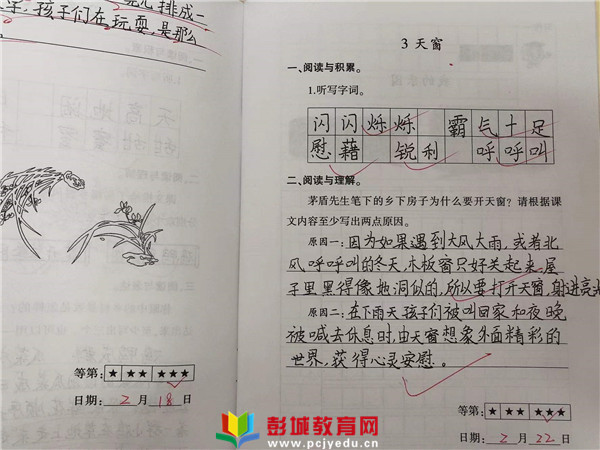 心排成一
字,孩子们在玩耍,是那么
等第: ★ ★★ ★★★
日期: 2 月 18 日
3 天窗
一、阅读与积累。
1.听写字词。
闪闪烁烁 霸气十足
慰藉 锐利 呼呼叫
二、阅读与理解。
茅盾先生笔下的乡下房子为什么要开天窗?请根据课
文内容至少写出两点原因。
原因一:因为如果遇到大风大雨,或者北
风呼呼叫的冬天,木板窗只好关起来,屋
子里黑得像地洞似的,所以要打开天窗,射进亮光
原因二:在下雨天孩子们被叫回家和夜晚
被喊去休息时,由天窗想象外面精彩的
世界,获得心灵安慰。
等第: ★ ★★ ★★★
日期: 2 月 22 日
彭城教育网
www.pcjyedu.cn